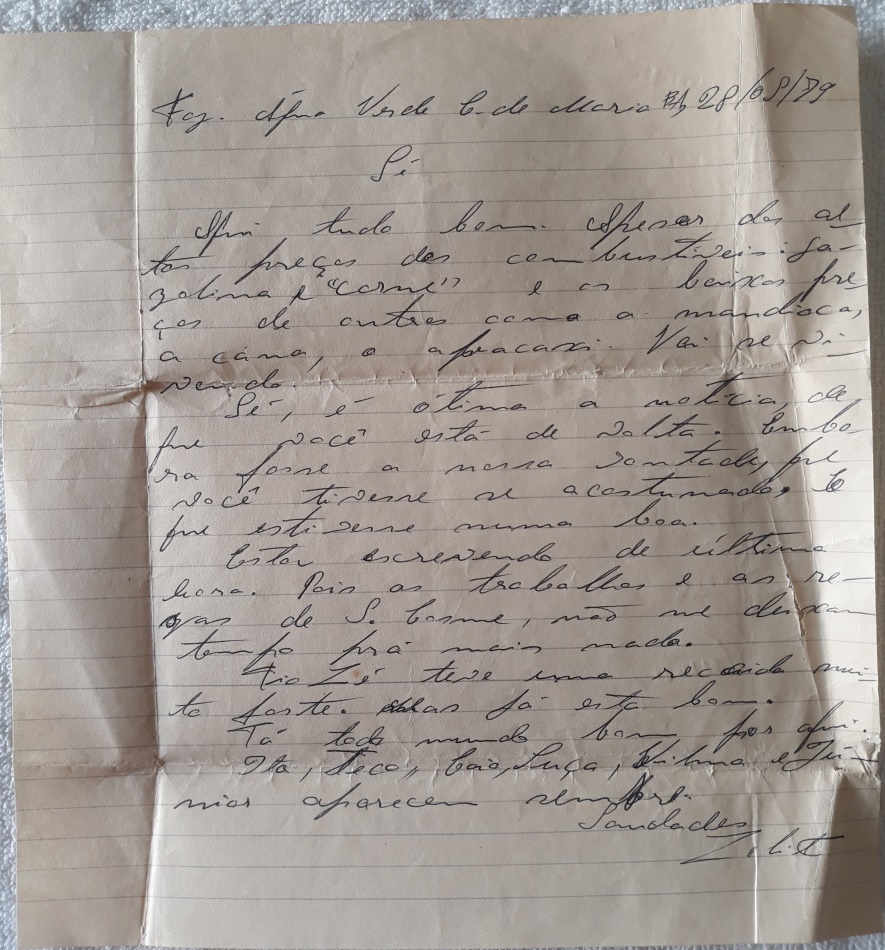 Faz. Água Verde C. de Maria BA, 28/09/79
Sé
Aqui tudo bem. Apesar dos al-
tos preços dos combustíveis: ga-
zolina e "carne" e os baixos pre
ços de outros como a mandioca,
a cana, o abacaxi. Vai se vi-
vendo.
Sé, é ótima a notícia, de
que você está de volta. Embo
ra fosse a nossa vontade, que
você tivesse se acostumado, E
que estivesse numa boa.
Estou escrevendo de última
hora. Pois os trabalhos e as re-
zas de S. Cosme, não me deixam
tempo prá mais nada.
Tio Zé teve uma recaida mui-
to forte. Mas já esta bom.
Tá todo mundo bom por aqui.
Ita, Teco, Caio, Luça, Vilma e Jú-
nior aparecem sempre.
Saudades